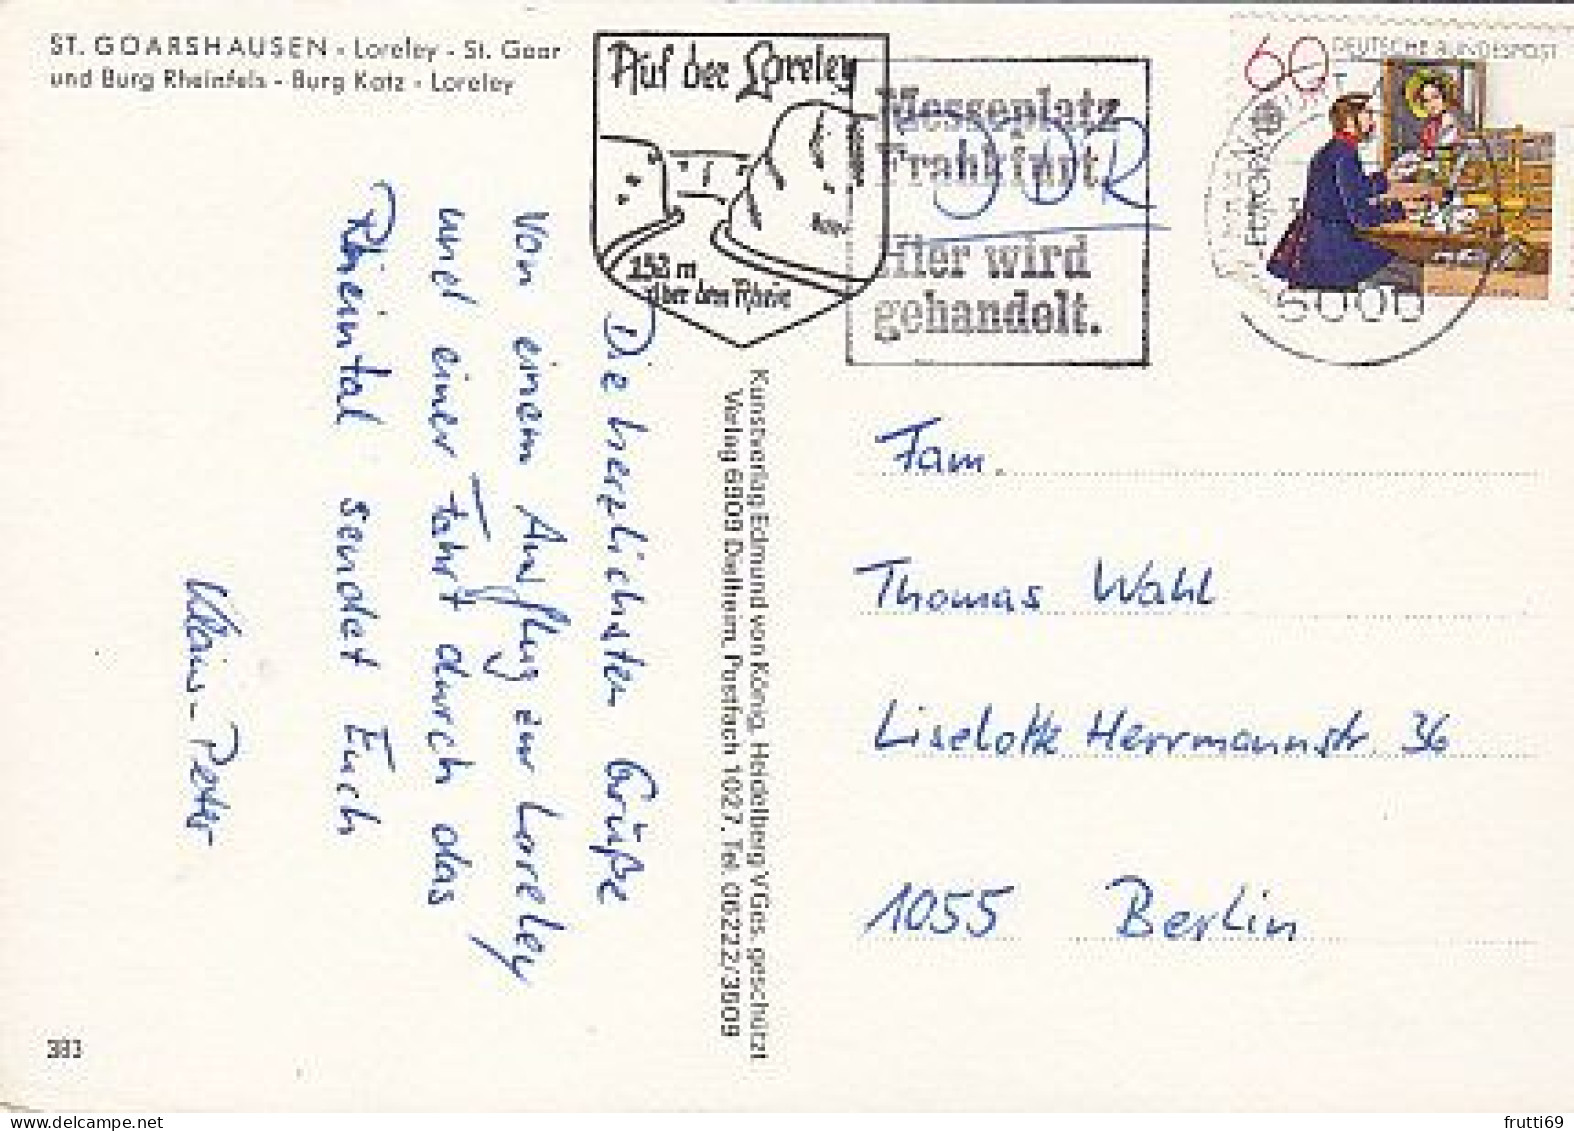 ST. GOARSHAUSEN - Loreley - St. Goar
und Burg Rheinfels - Burg Katz - Loreley
Auf der Loreley
152 m
über dem Rhein
Messeplatz
Frankfurt.
Hier wird
gehandelt.
DDR
60 DEUTSCHE BUNDESPOST
6000
Die herzlichsten Grüße
von einem Ausflug zur Loreley
und einer Fahrt durch das
Rheintal sendet Euch
Klaus-Peter
Kunstverlag Edmund von König, Heidelberg V Ges. geschützt
Verlag 6909 Dielheim, Postfach 1027, Tel. 06222/3509
Fam.
Thomas Wahl
Liselotte Herrmannstr. 36
1055 Berlin
383
frutti69